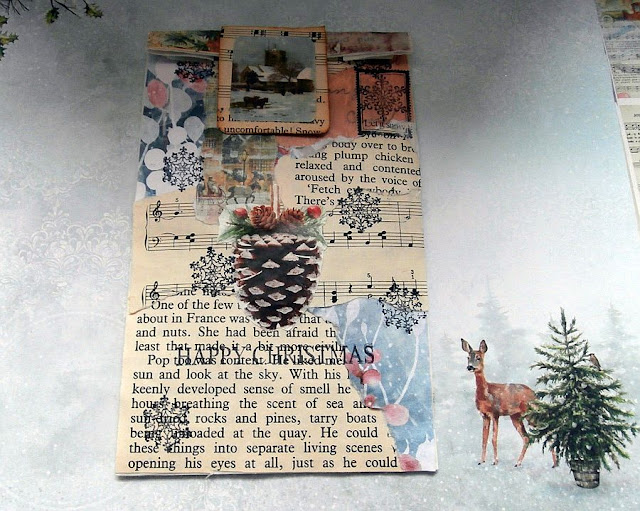 uncomfortable! Snow
body over to bre
plump chicken
relaxed and contented
aroused by the voice of
'Fetch everybody
There's
One of the few
about in France was that
and nuts. She had been afraid th
least that made it a bit more civil
HAPPY CHRISTMAS
Pop was content. He liked
sun and look at the sky. With his
keenly developed sense of smell he
hours breathing the scent of sea and
sun-dried rocks and pines, tarry boats
being unloaded at the quay. He could
these things into separate living scenes
opening his eyes at all, just as he could